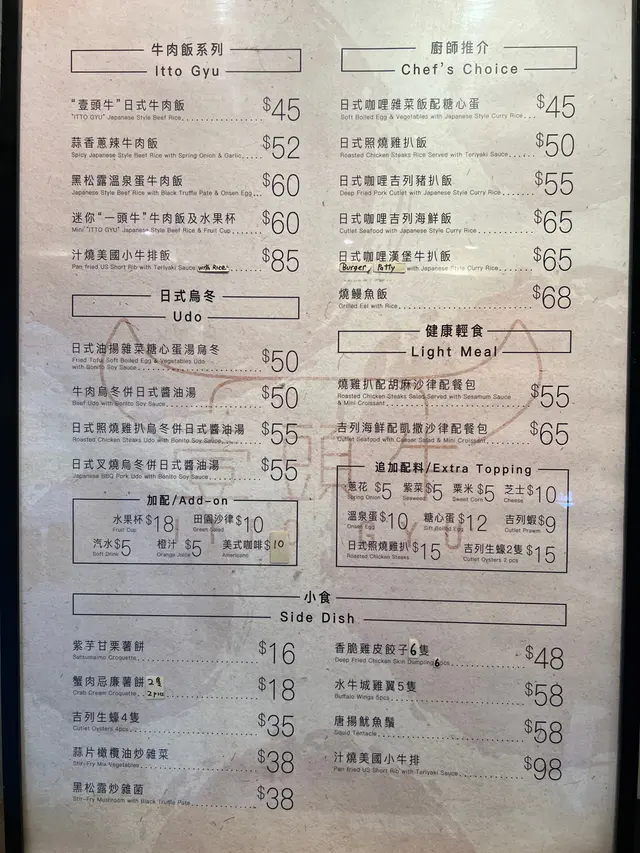 牛肉飯系列
Itto Gyu
“壹頭牛”日式牛肉飯 $45
"ITTO GYU" Japanese Style Beef Rice
蒜香蔥辣牛肉飯 $52
Spicy Japanese Style Beef Rice with Spring Onion & Garlic
黑松露溫泉蛋牛肉飯 $60
Japanese Style Beef Rice with Black Truffle Pate & Onsen Egg
迷你“一頭牛”牛肉飯及水果杯 $60
Mini "ITTO GYU" Japanese Style Beef Rice & Fruit Cup
汁燒美國小牛排飯 $85
Pan fried US Short Rib with Teriyaki Sauce with Rice
日式烏冬
Udo
日式油揚雜菜糖心蛋湯烏冬 $50
Fried Tofu, Soft Boiled Egg & Vegetables Udo
with Bonito Soy Sauce
牛肉烏冬併日式醬油湯 $50
Beef Udo with Bonito Soy Sauce
日式照燒雞扒烏冬併日式醬油湯 $55
Roasted Chicken Steaks Udo with Bonito Soy Sauce
日式叉燒烏冬併日式醬油湯 $55
Japanese BBQ Pork Udo with Bonito Soy Sauce
加配/Add-on
水果杯 $18 田園沙律 $10
Fruit Cup Green Salad
汽水 $5 橙汁 $5 美式咖啡 $10
Soft Drink Orange Juice Americano
廚師推介
Chef's Choice
日式咖哩雜菜飯配糖心蛋 $45
Soft Boiled Egg & Vegetables with Japanese Style Curry Rice
日式照燒雞扒飯 $50
Roasted Chicken Steaks Rice Served with Teriyaki Sauce
日式咖哩吉列豬扒飯 $55
Deep Fried Pork Cutlet with Japanese Style Curry Rice
日式咖哩吉列海鮮飯 $65
Cutlet Seafood with Japanese Style Curry Rice
日式咖哩漢堡牛扒飯 $65
Burger Patty with Japanese Style Curry Rice
燒鰻魚飯 $68
Grilled Eel with Rice
健康輕食
Light Meal
燒雞扒配胡麻沙律配餐包 $55
Roasted Chicken Steaks Salad Served with Sesamum Sauce
& Mini Croissant
吉列海鮮配凱撒沙律配餐包 $65
Cutlet Seafood with Caesar Salad & Mini Croissant
追加配料/Extra Topping
蔥花 $5 紫菜 $5 粟米 $5 芝士 $10
Spring Onion Seaweed Sweet Corn Cheese
溫泉蛋 $10 糖心蛋 $12 吉列蝦 $9
Onsen Egg Soft Boiled Egg Cutlet Prawn
日式照燒雞扒 $15 吉列生蠔2隻 $15
Roasted Chicken Steaks Cutlet Oysters 2 pcs
壹頭牛
ITTO GYU
小食
Side Dish
紫芋甘栗薯餅 $16
Satsumaimo Croquette
蟹肉忌廉薯餅 2隻 $18
Crab Cream Croquette 2pcs
吉列生蠔4隻 $35
Cutlet Oysters 4pcs
蒜片橄欖油炒雜菜 $38
Stir-Fry Mix Vegetables
黑松露炒雜菌 $38
Stir-Fry Mushroom with Black Truffle Pate
香脆雞皮餃子6隻 $48
Deep Fried Chicken Skin Dumpling 6pcs
水牛城雞翼5隻 $58
Buffalo Wings 5pcs
唐揚魷魚鬚 $58
Squid Tentacle
汁燒美國小牛排 $98
Pan fried US Short Rib with Teriyaki Sauce